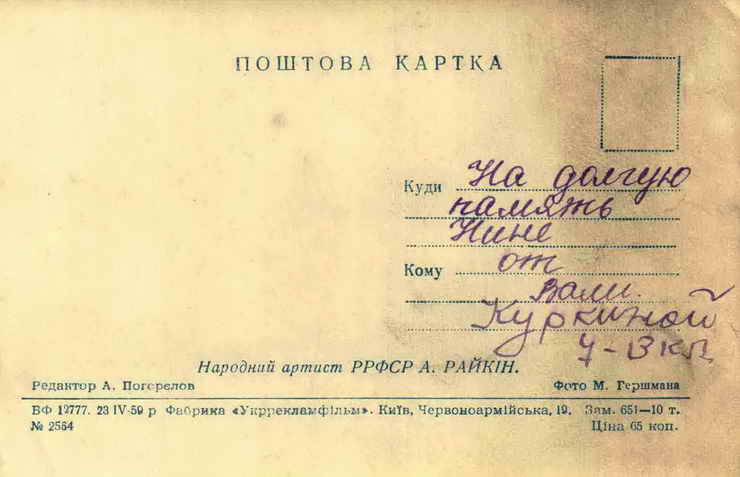 ПОШТОВА КАРТКА
Куди На долгую
память
Нине
Кому от
Вали
Куркиной
7-В кл
Народний артист РРФСР А. РАЙКІН.
Редактор А. Погорєлов Фото М. Гершмана
БФ 12777. 23 IV-59 р Фабрика «Укррекламфільм». Київ, Червоноармійська, 19. Зам. 651—10 т.
№ 2564 Ціна 65 коп.